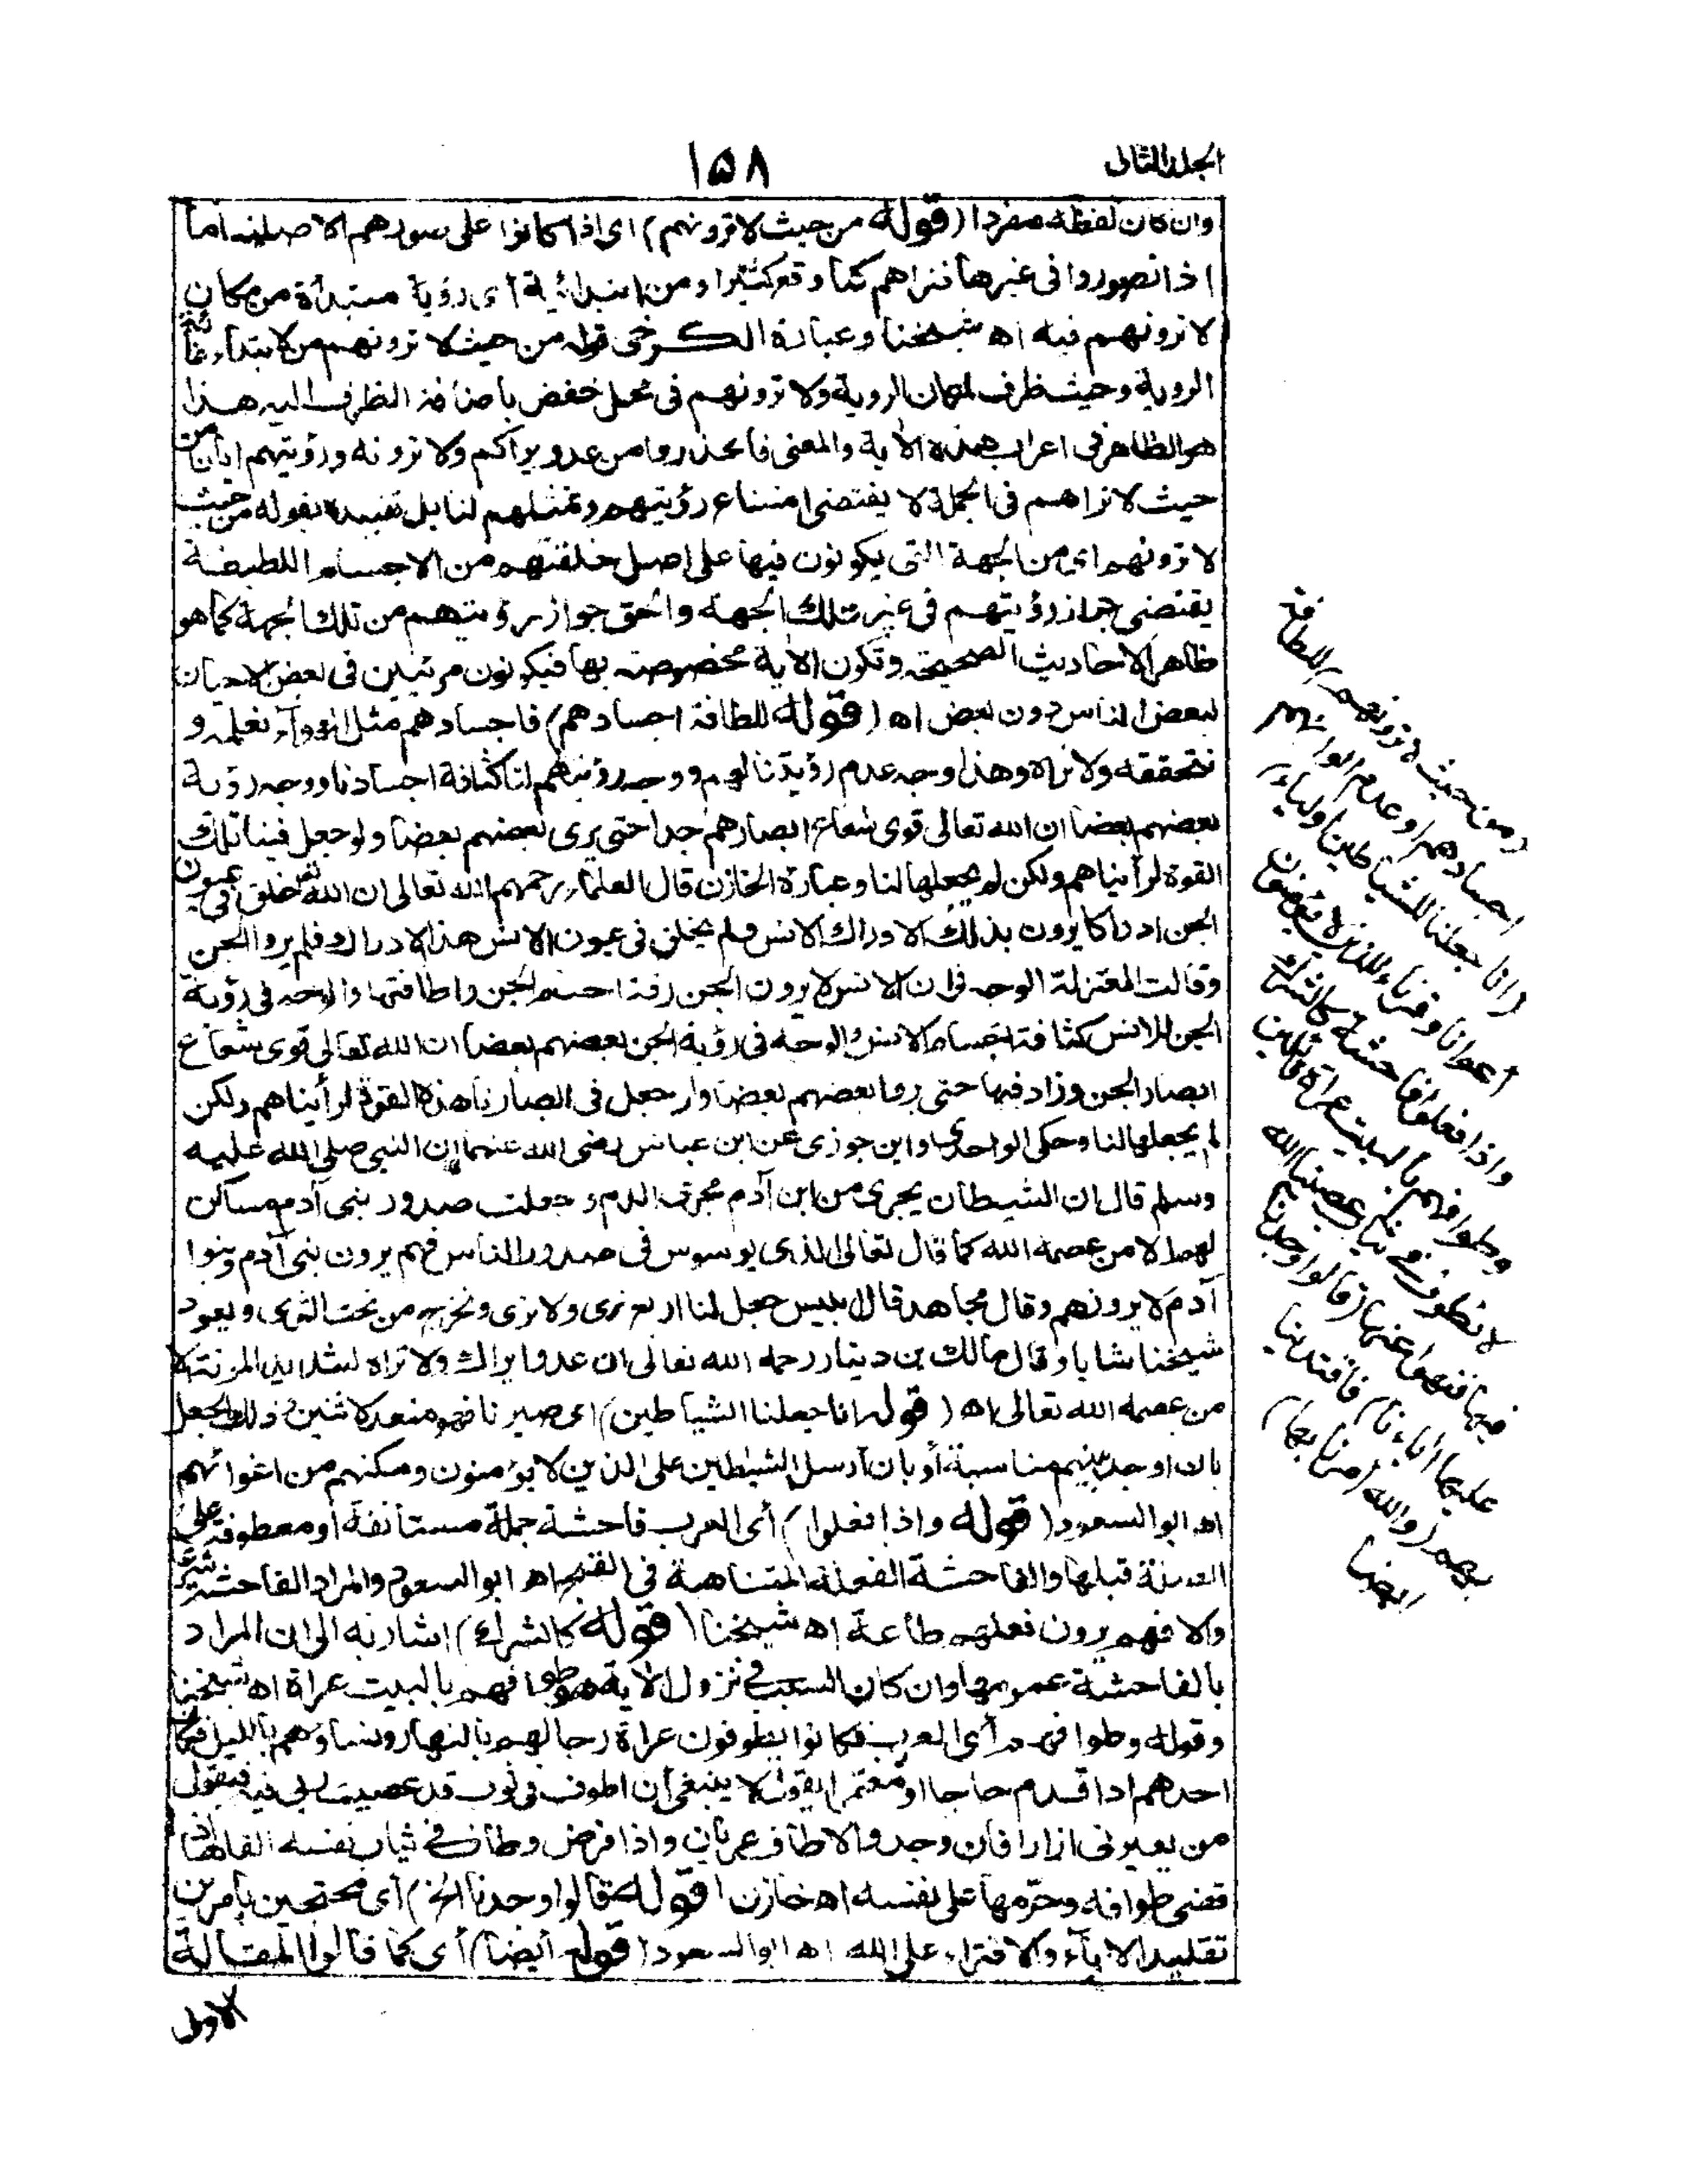 الجلد الثانى
١٥٨
وان كان لفظه مفردا (قوله من حيث لا ترونهم) اى اذا كانوا على صورهم الاصلية اما
اذا تصوروا فى غيرها فنراهم كما وقع كثيرا ومن ابتدائية أى رؤية مبتدأة من مكان
لا ترونهم فيه اه شيخنا وعبارة الكرخى قوله من حيث لا ترونهم من لابتداء غاية
الروية وحيث ظرف لمكان الروية ولا ترونهم فى محل خفض باضافة الظرف اليه هذا
هو الظاهر فى اعراب هذه الآية والمعنى فاحذروا من عدو يراكم ولا ترونه ورؤيتهم ايانا من
حيث لا نراهم فى الجملة لا يقتضى امتناع رؤيتهم وتمثلهم لنا بل تقييده بقوله من حيث
لا ترونهم اى من الجهة التى يكونون فيها على اصل خلقتهم من الاجسام اللطيفة
يقتضى جواز رؤيتهم فى غير تلك الجهة والحق جواز رؤيتهم من تلك الجهة كما هو
ظاهر الاحاديث الصحيحة وتكون الآية مخصوصة بها فيكونون مرئيين فى بعض الاحيان
لبعض الناس دون بعض اه (قوله للطافة اجسادهم) فاجسادهم مثل الهواء نعلمه و
نتحققه ولا نراه وهذا وجه عدم رؤيتنا لهم ووجه رؤيتهم لنا كثافة اجسادنا ووجه رؤية
بعضهم بعضا ان الله تعالى قوى شعاع ابصارهم جدا حتى يرى بعضهم بعضا ولو جعل فينا تلك
القوة لرأيناهم ولكن لم يجعلها لنا وعبارة الخازن قال العلماء رحمهم الله تعالى ان الله خلق فى عيون
الجن ادراكا يرون بذلك الادراك الانس ولم يخلق فى عيون الانس هذا الادراك فلم يروا الجن
وقالت المعتزلة الوجه فى ان الانس لا يرون الجن رقة اجسام الجن ولطافتها والوجه فى رؤية
الجن للانس كثافة اجسام الانس والوجه فى رؤية الجن بعضهم بعضا ان الله تعالى قوى شعاع
ابصار الجن وزاد فيها حتى يرى بعضهم بعضا ولو جعل فى ابصارنا هذه القوة لرأيناهم ولكن
لم يجعلها لنا وحكى الواحدى وابن جوزى عن ابن عباس رضى الله عنهما ان النبى صلى الله عليه
وسلم قال ان الشيطان يجرى من ابن آدم مجرى الدم وجعلت صدور بنى آدم مساكن
لهم الا من عصمه الله كما قال تعالى الذى يوسوس فى صدور الناس فهم يرون بنى آدم وبنوا
آدم لا يرونهم وقال مجاهد قال ابليس جعل لنا اربع نرى ولا نرى ونخرج من تحت الثرى ويعود
شيخنا شابا وقال مالك بن دينار رحمه الله تعالى ان عدوا يراك ولا تراه لشديد المؤنة الا
من عصمه الله تعالى اه (قوله انا جعلنا الشياطين) اى صيرنا فهو متعد لاثنين وذلك الجعل
بان اوجد بينهم مناسبة أو بان أرسل الشيطين على الذين لا يؤمنون ومكنهم من اغوائهم
اه ابو السعود (قوله واذا فعلوا) أى العرب فاحشة جملة مستأنفة أو معطوفة على
الصلة قبلها والفاحشة الفعلة المتناهية فى القبح اه ابو السعود والمراد الفاحشة
والا فهم يرون فعلهم طاعة اه شيخنا (قوله كالشرك) اشار به الى ان المراد
بالفاحشة عمومها وان كان السبب فى نزول الآية هو طوافهم بالبيت عراة اه شيخنا
وقوله وطوافهم أى العرب فكانوا يطوفون عراة رجالهم بالنهار ونساؤهم بالليل فكان
احدهم اذا قدم حاجا او معتمرا يقول لا ينبغى أن اطوف فى ثوب قد عصيت ربى فيه فيقول
من يعيرنى ازارا فان وجد والا طاف عريان واذا فرض وطاف فى ثياب نفسه القاها اذا
قضى طوافه وحرّمها على نفسه اه خازن (قوله قالوا وجدنا الخ) أى محتجين بأمرين
تقليد الاباء والافتراء على الله اه ابو السعود (قوله أيضا) أى كما قالوا المقالة
الاولى
من حيث لا ترونهم للطافة
اجسادهم او عدم الوانهم
انا جعلنا الشياطين اولياء
اعوانا وقرناء للذين لا يؤمنون
واذا فعلوا فاحشة كالشرك
وطوافهم بالبيت عراة قائلين
لا نطوف فى ثياب عصينا الله
فيها فنهوا عنها قالوا وجدنا
عليها اباءنا فاقتدينا
بهم والله امرنا بها
ايضا